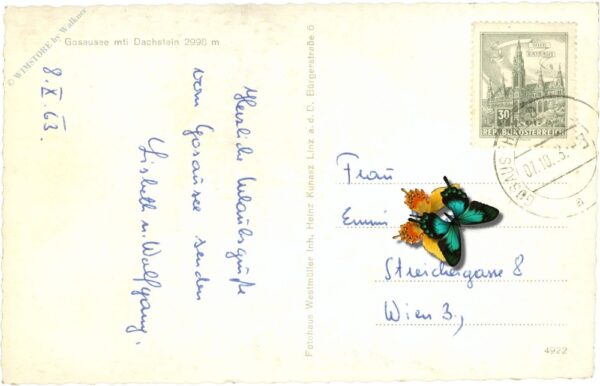 © WIMSTORE by Walkner
Gosausee mti Dachstein 2996 m
8. X. 63.
Herzliche Urlaubsgrüße
vom Gosausee senden
Lisbeth u. Wolfgang.
Fotohaus Westmüller Inh. Heinz Kunasz Linz a. d. D. Bürgerstraße 6
30
REPUBLIK ÖSTERREICH
GOSAU
07.10.
a
Frau
Emmi
Streichergasse 8
Wien 3.,
4922